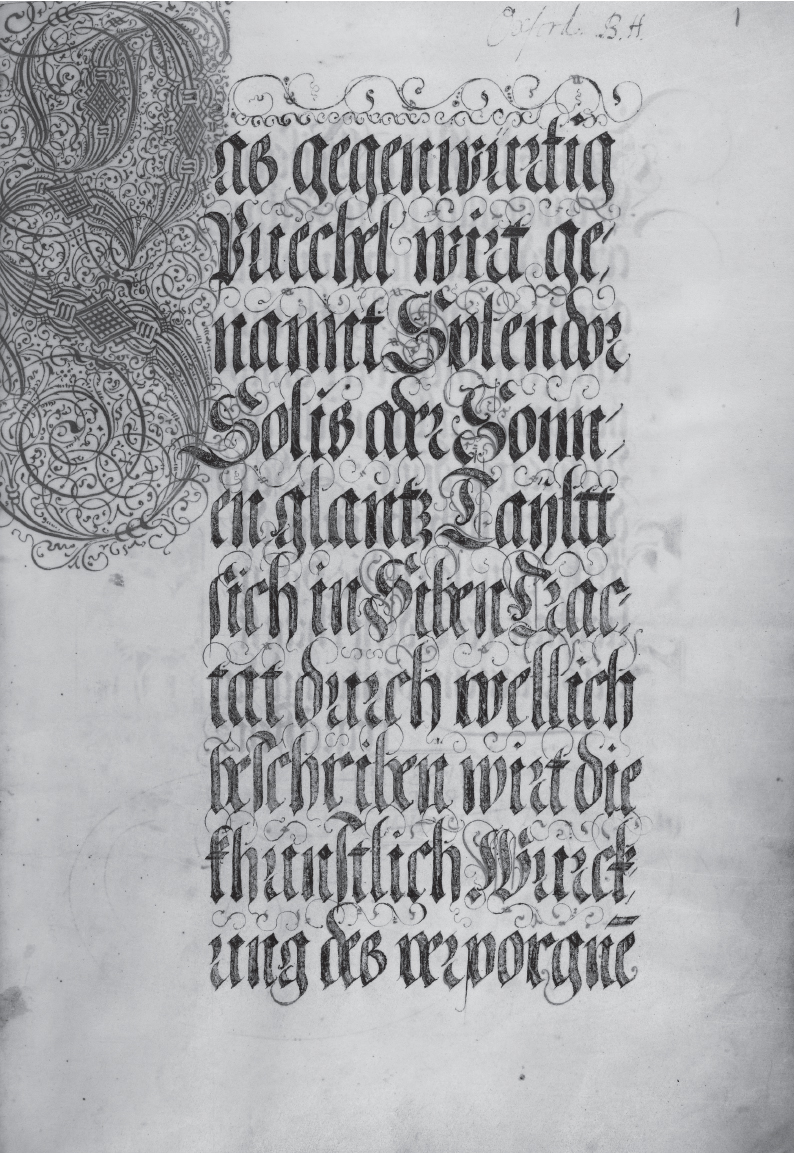 Oxford. B. H. 1
Das gegenwürtig
Puechel wirt ge⸗
nannt Splendor
Solis oder Sonn⸗
en glantz Taÿltt
sich in Siben Trac⸗
tat durch wellich
beschriben wirt die
khunstlich Würck⸗
ung des verporgnē